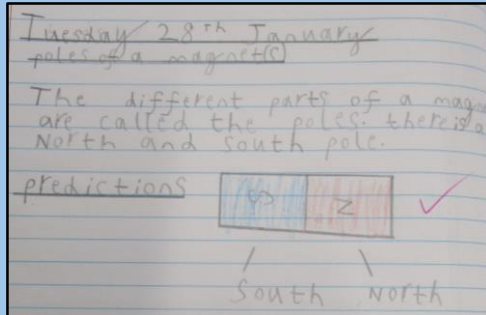 Tuesday 28th January
poles of a magnet(s)
The different parts of a magne
are called the poles. there is a
North and south pole.
predictions
S N
South North